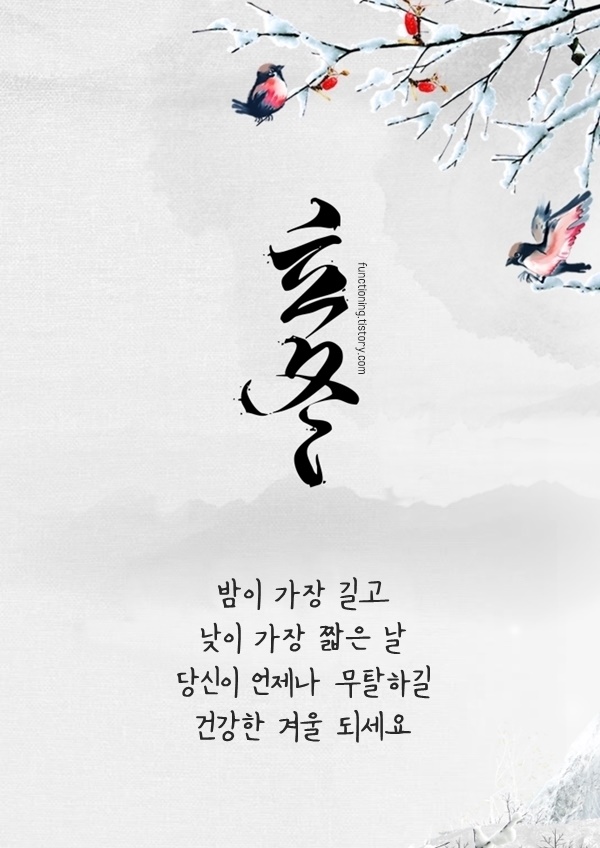 立冬
functioning.tistory.com
밤이 가장 길고
낮이 가장 짧은 날
당신이 언제나 무탈하길
건강한 겨울 되세요